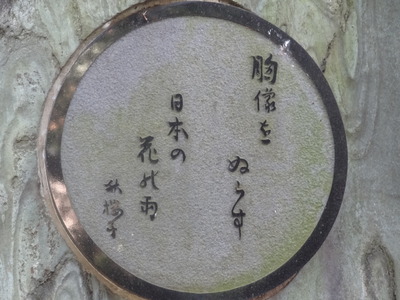 胸像を
ぬらす
日本の
花の雨
秋櫻子